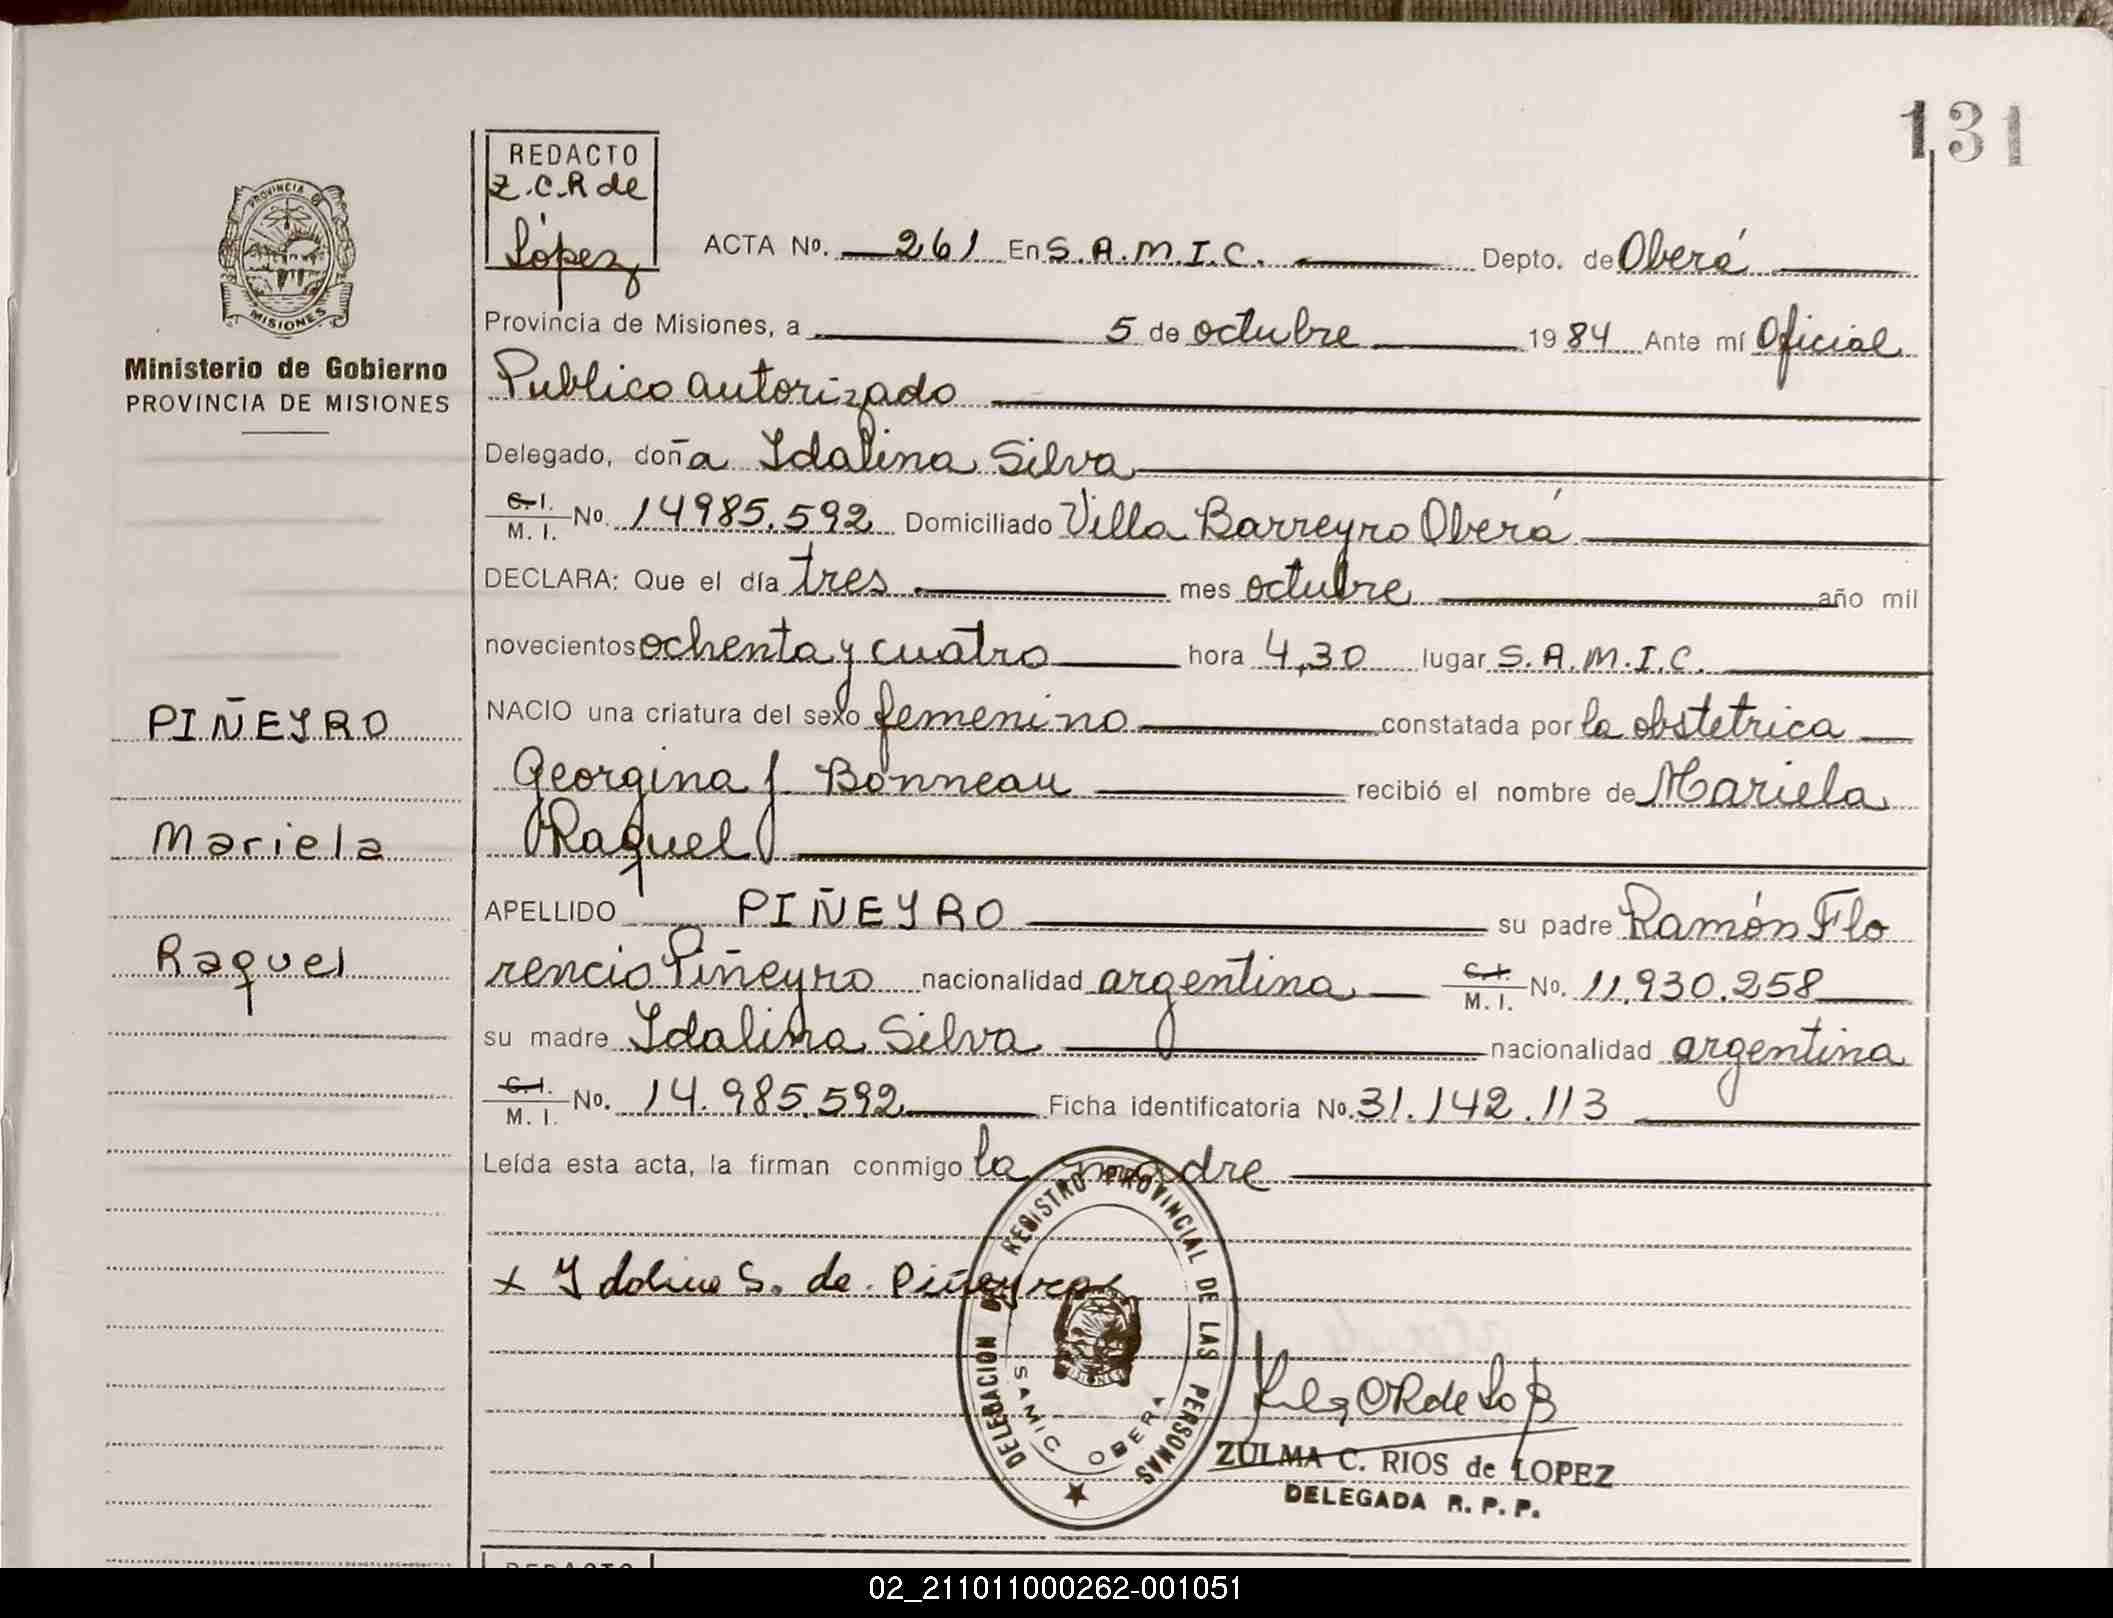 131
REDACTO
Z.C.R de
López
ACTA No. 261 En S.A.M.I.C. Depto. de Oberá
Provincia de Misiones, a 5 de octubre 1984 Ante mí Oficial
Publico autorizado
Delegado, doña Idalina Silva
C.I. / M.I. No. 14985.592 Domiciliado Villa Barreyro Oberá
DECLARA: Que el día tres mes octubre año mil
novecientos ochenta y cuatro hora 4,30 lugar S.A.M.I.C.
NACIO una criatura del sexo femenino constatada por la obstetrica
Georgina J. Bonneau recibió el nombre de Mariela
Raquel
APELLIDO PIÑEYRO su padre Ramón Flo
rencio Piñeyro nacionalidad argentina C.I. / M.I. No. 11.930.258
su madre Idalina Silva nacionalidad argentina
C.I. / M.I. No. 14.985.592 Ficha identificatoria No. 31.142.113
Leída esta acta, la firman conmigo la madre
x Idalina S. de Piñeyro
DELEGACION DEL REGISTRO PROVINCIAL DE LAS PERSONAS
SAMIC OBERA
ZULMA C. RIOS de LOPEZ
DELEGADA R.P.P.
PROVINCIA D
MISIONES
Ministerio de Gobierno
PROVINCIA DE MISIONES
PIÑEYRO
Mariela
Raquel
REDACTO
02_211011000262-001051